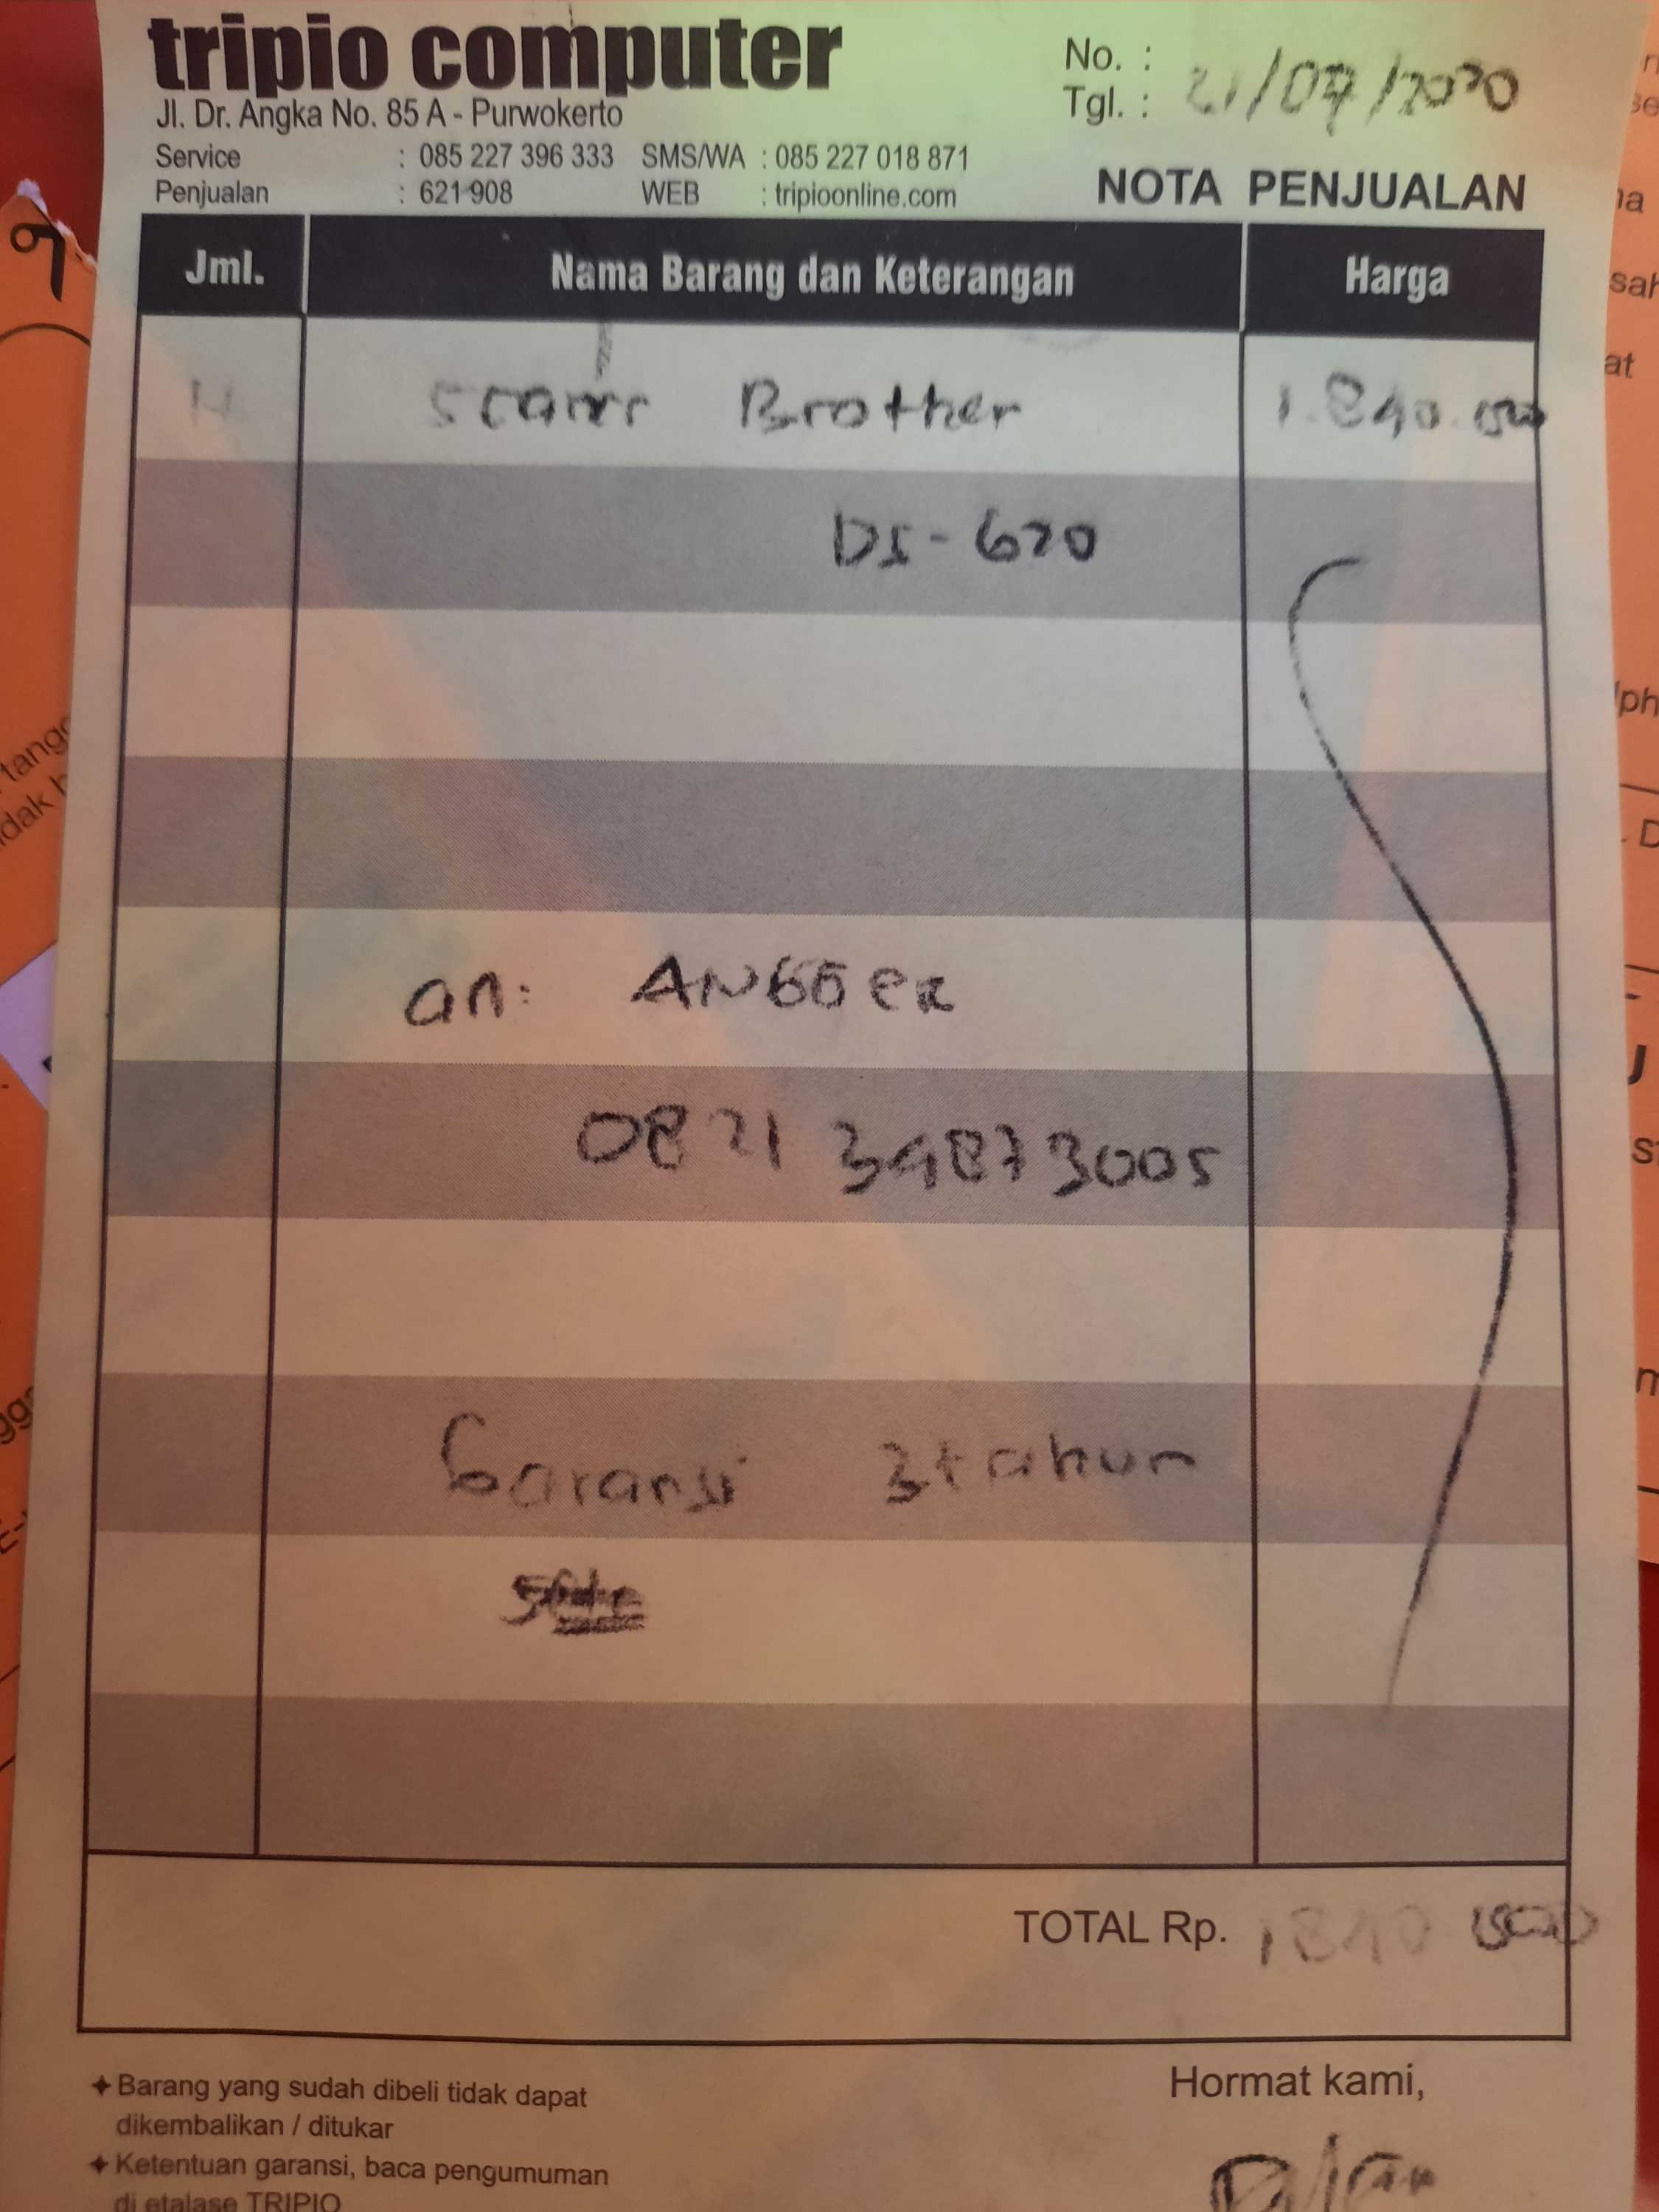 tripio computer
Jl. Dr. Angka No. 85 A - Purwokerto
Service : 085 227 396 333 SMS/WA : 085 227 018 871
Penjualan : 621 908 WEB : tripioonline.com
No. :
Tgl. : 21/07/2020
NOTA PENJUALAN
Jml. Nama Barang dan Keterangan Harga
Brother 1.840.000
DS-620
an: ANGGER
0821 34873005
Garansi 3 tahun
TOTAL Rp. 1840 000
Barang yang sudah dibeli tidak dapat
dikembalikan / ditukar
Ketentuan garansi, baca pengumuman
di etalase TRIPIO
Hormat kami,